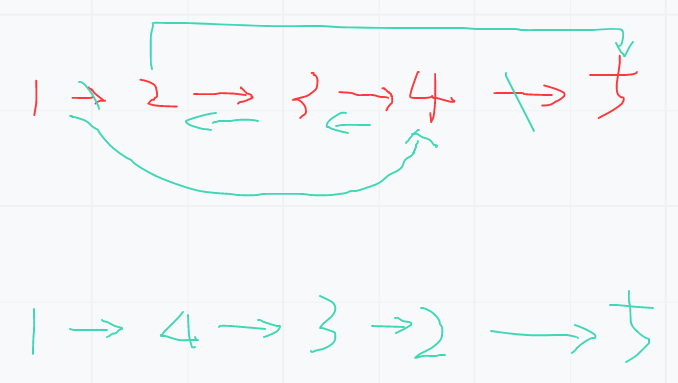 1 → 2 → 3 → 4 → 5
1 → 4 → 3 → 2 → 5